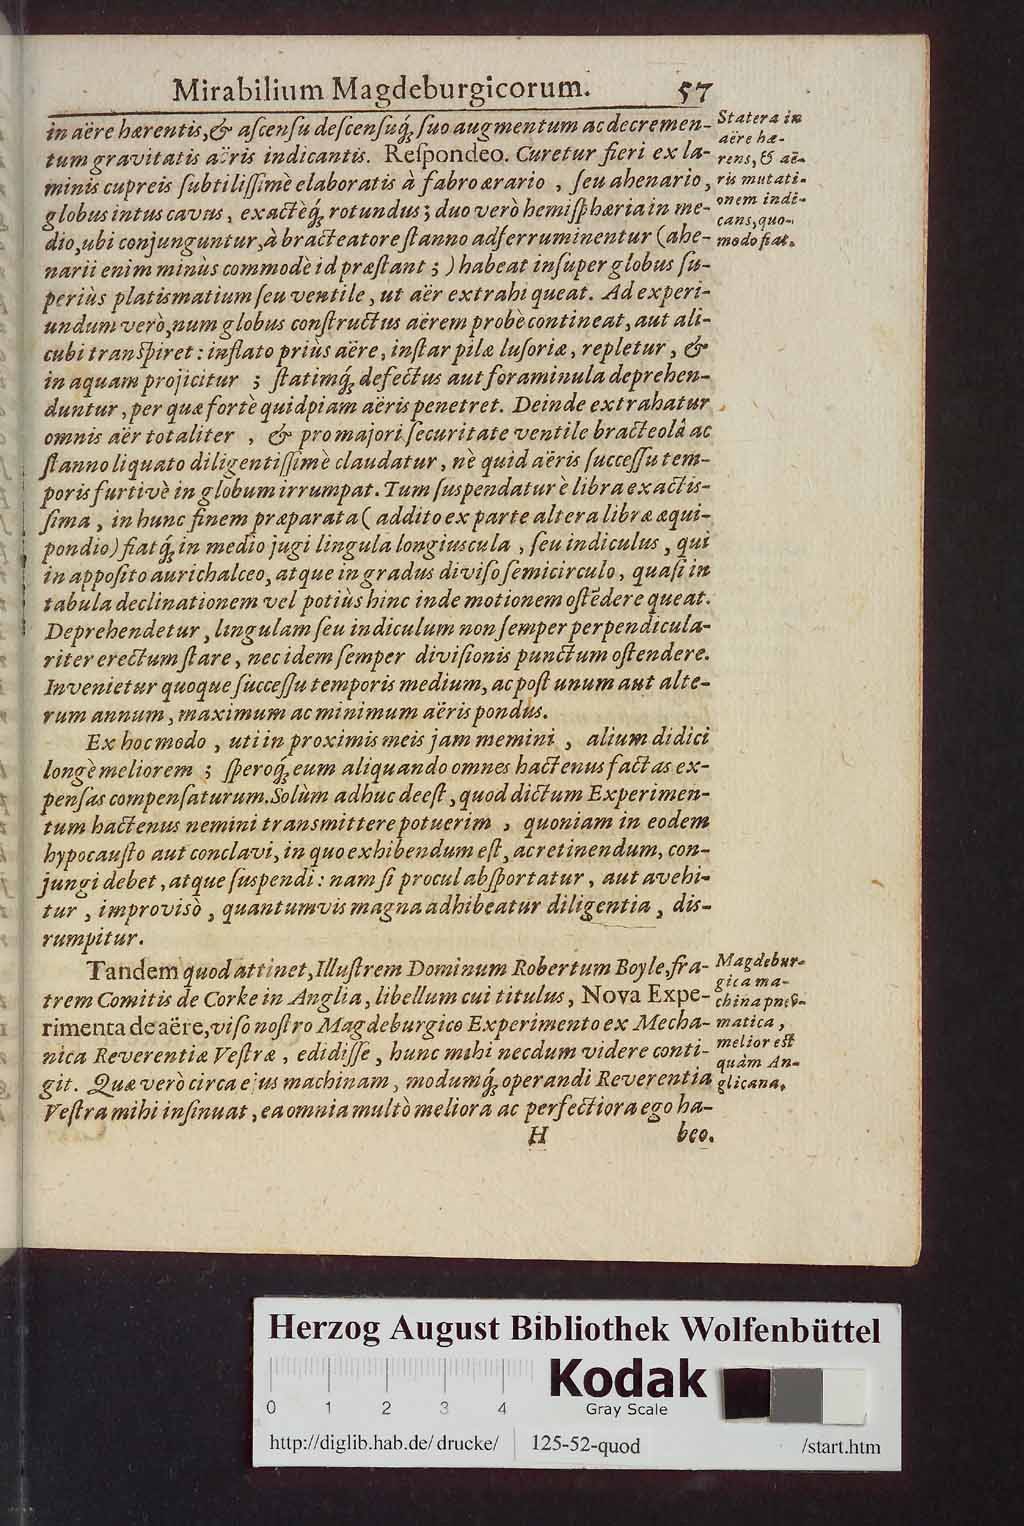 Mirabilium Magdeburgicorum. 57
in aëre hærentis, & aſcenſu deſcenſuq́; ſuo augmentum ac decremen-
tum gravitatis aëris indicantis. Reſpondeo. Curetur fieri ex la-
minis cupreis ſubtiliſſimè elaboratis à fabro ærario, ſeu ahenario,
globus intus cavus, exactèq́; rotundus; duo verò hemiſphæria in me-
dio, ubi conjunguntur, à bracteatore ſtanno adferruminentur (ahe-
narii enim minùs commodè id præſtant;) habeat inſuper globus ſu-
periùs platismatium ſeu ventile, ut aër extrahi queat. Ad experi-
undum verò, num globus conſtructus aërem probè contineat, aut ali-
cubi tranſpiret: inflato priùs aëre, inſtar pilæ luſoriæ, repletur, &
in aquam projicitur; ſtatimq́; defectus aut foraminula deprehen-
duntur, per quæ fortè quidpiam aëris penetret. Deinde extrahatur
omnis aër totaliter, & pro majori ſecuritate ventile bracteolâ ac
ſtanno liquato diligentiſſimè claudatur, nè quid aëris ſucceſſu tem-
poris furtivè in globum irrumpat. Tum ſuspendatur è libra exactis-
ſima, in hunc finem præparata (addito ex parte altera libræ æqui-
pondio) fiatq́; in medio jugi lingula longiuscula, ſeu indiculus, qui
in appoſito aurichalceo, atque in gradus diviſo ſemicirculo, quaſi in
tabula declinationem vel potiùs hinc inde motionem oſtẽdere queat.
Deprehendetur, lingulam ſeu indiculum non ſemper perpendicula-
riter erectum ſtare, nec idem ſemper diviſionis punctum oſtendere.
Invenietur quoque ſucceſſu temporis medium, ac poſt unum aut alte-
rum annum, maximum ac minimum aëris pondus.
Ex hoc modo, uti in proximis meis jam memini, alium didici
longè meliorem; ſperoq́; eum aliquando omnes hactenus factas ex-
penſas compenſaturum. Solùm adhuc deeſt, quod dictum Experimen-
tum hactenus nemini transmittere potuerim, quoniam in eodem
hypocauſto aut conclavi, in quo exhibendum eſt, ac retinendum, con-
jungi debet, atque ſuspendi: nam ſi procul abſportatur, aut avehi-
tur, improvisò, quantumvis magna adhibeatur diligentia, dis-
rumpitur.
Tandem quod attinet, Illuſtrem Dominum Robertum Boyle, fra-
trem Comitis de Corke in Anglia, libellum cui titulus, Nova Expe-
rimenta de aëre, viſo noſtro Magdeburgico Experimento ex Mecha-
nica Reverentiæ Veſtræ, edidiſſe, hunc mihi necdum videre conti-
git. Quæ verò circa ejus machinam, modumq́; operandi Reverentia
Veſtra mihi inſinuat, ea omnia multò meliora ac perfectiora ego ha-
H beo.
Statera in
aëre hæ-
rens, & aë-
ris mutati-
onem indi-
cans, quo-
modo fiat.
Magdebur-
gica ma-
china pneũ-
matica,
melior eſt
quàm An-
glicana.
Herzog August Bibliothek Wolfenbüttel
Kodak
Gray Scale
0 1 2 3 4
http://diglib.hab.de/drucke/ 125-52-quod /start.htm